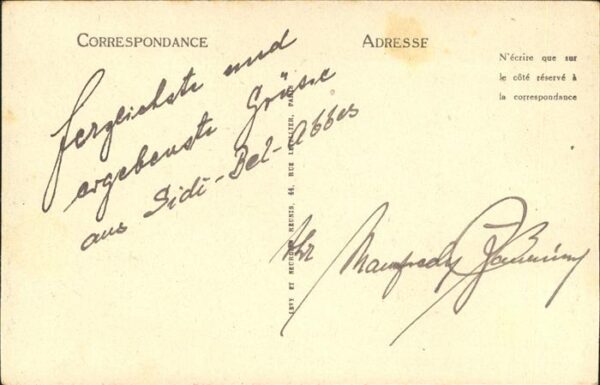 CORRESPONDANCE
ADRESSE
N'écrire que sur
le côté réservé à
la correspondance
herzlichste und
ergebenste Grüsse
aus Sidi-Bel-Abbes
Ihr Manfred
LÉVY ET NEURDEIN RÉUNIS, 44, RUE LETELLIER, PARIS